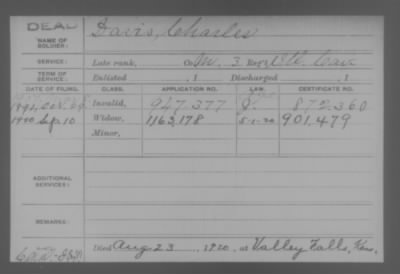 DEAD
NAME OF SOLDIER: Davis, Charles
SERVICE: Late rank, Co. M, 3 Reg't Cav
TERM OF SERVICE: Enlisted , 1 Discharged , 1
DATE OF FILING. CLASS. APPLICATION NO. LAW. CERTIFICATE NO.
Invalid, 947.377 872.360
1920 Sep. 10 Widow, 1163.178 5-1-20 901.479
Minor,
ADDITIONAL SERVICES:
REMARKS:
Died Aug 23 1920, at Valley Falls, Kan.